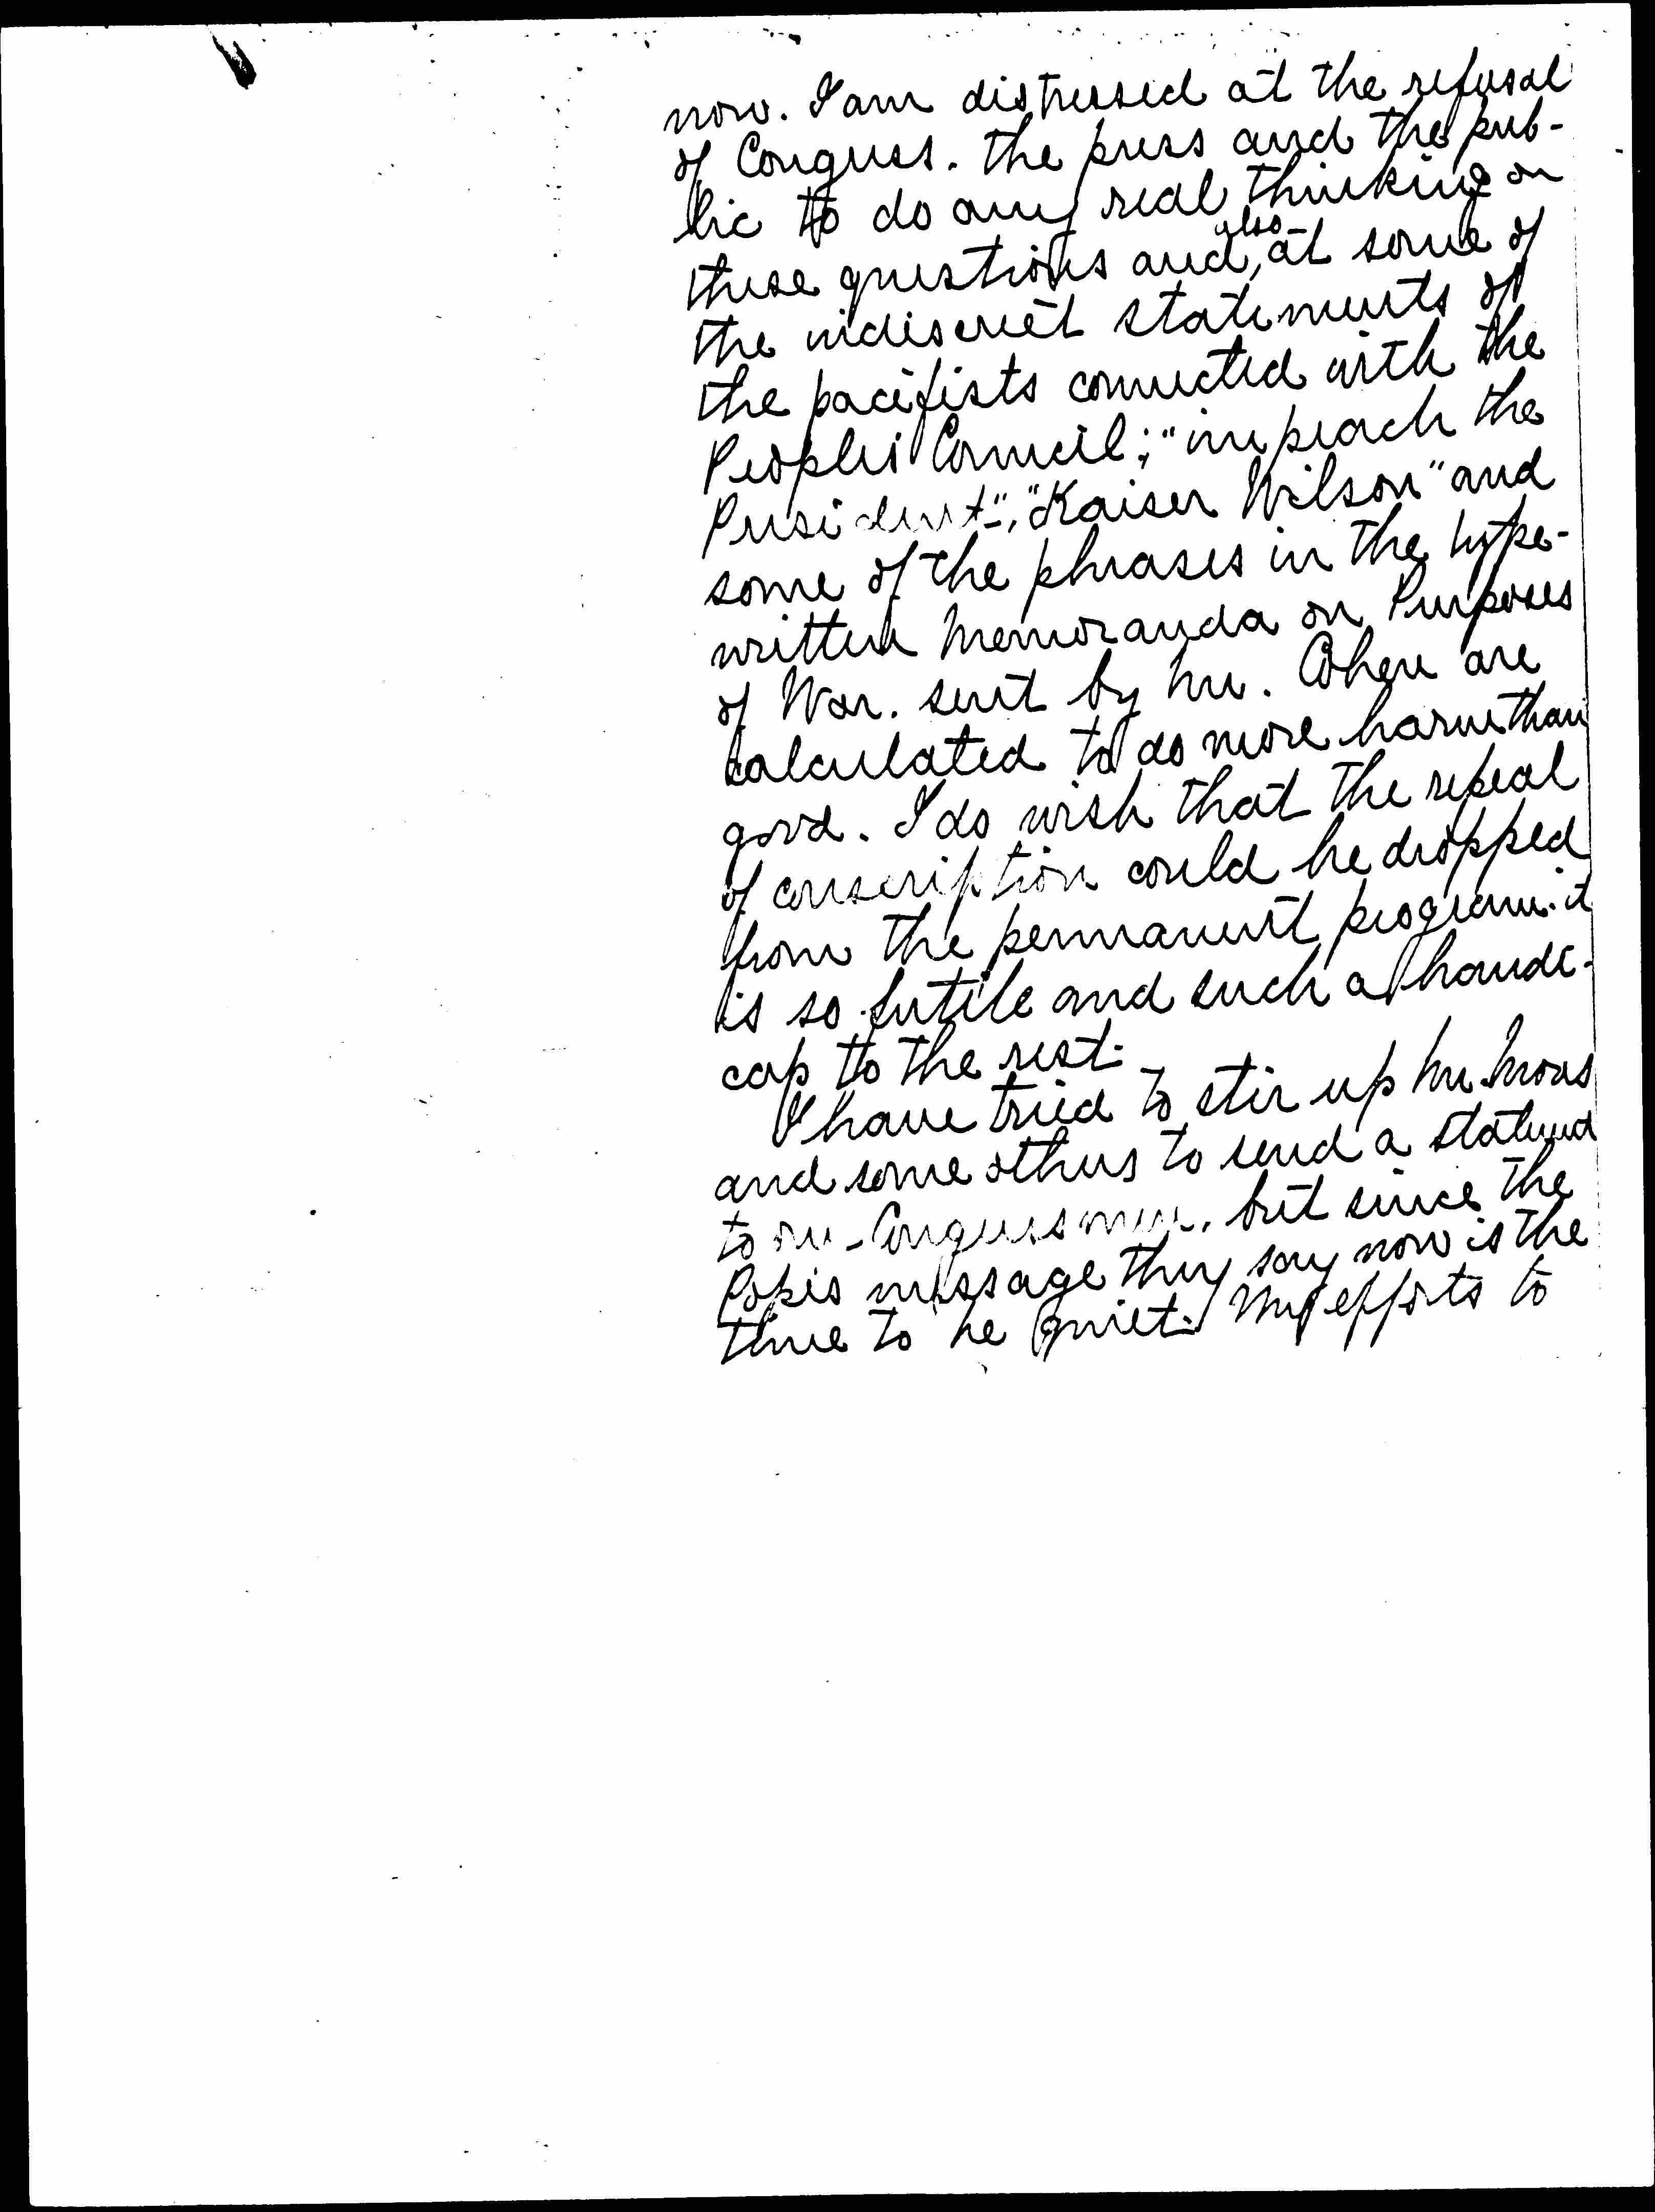 now. I am distressed at the refusal
of Congress. the press and the pub-
lic to do any real thinking on
these questions and, also at some of
the indiscreet statements of
the pacifists connected with the
Peoples Council; "impeach the
President", "Kaiser Wilson" and
some of the phrases in the type-
written memoranda on Purposes
of War. sent by Mr. Cohen are
calculated to do more harm than
good. I do wish that the repeal
of conscription could be dropped
from the permanent program. it
is so futile and such a handi-
cap to the rest.
I have tried to stir up Mr.
and some others to send a statement
to our Congressmen. but since the
Popes message they say now is the
time to be quiet. My efforts to